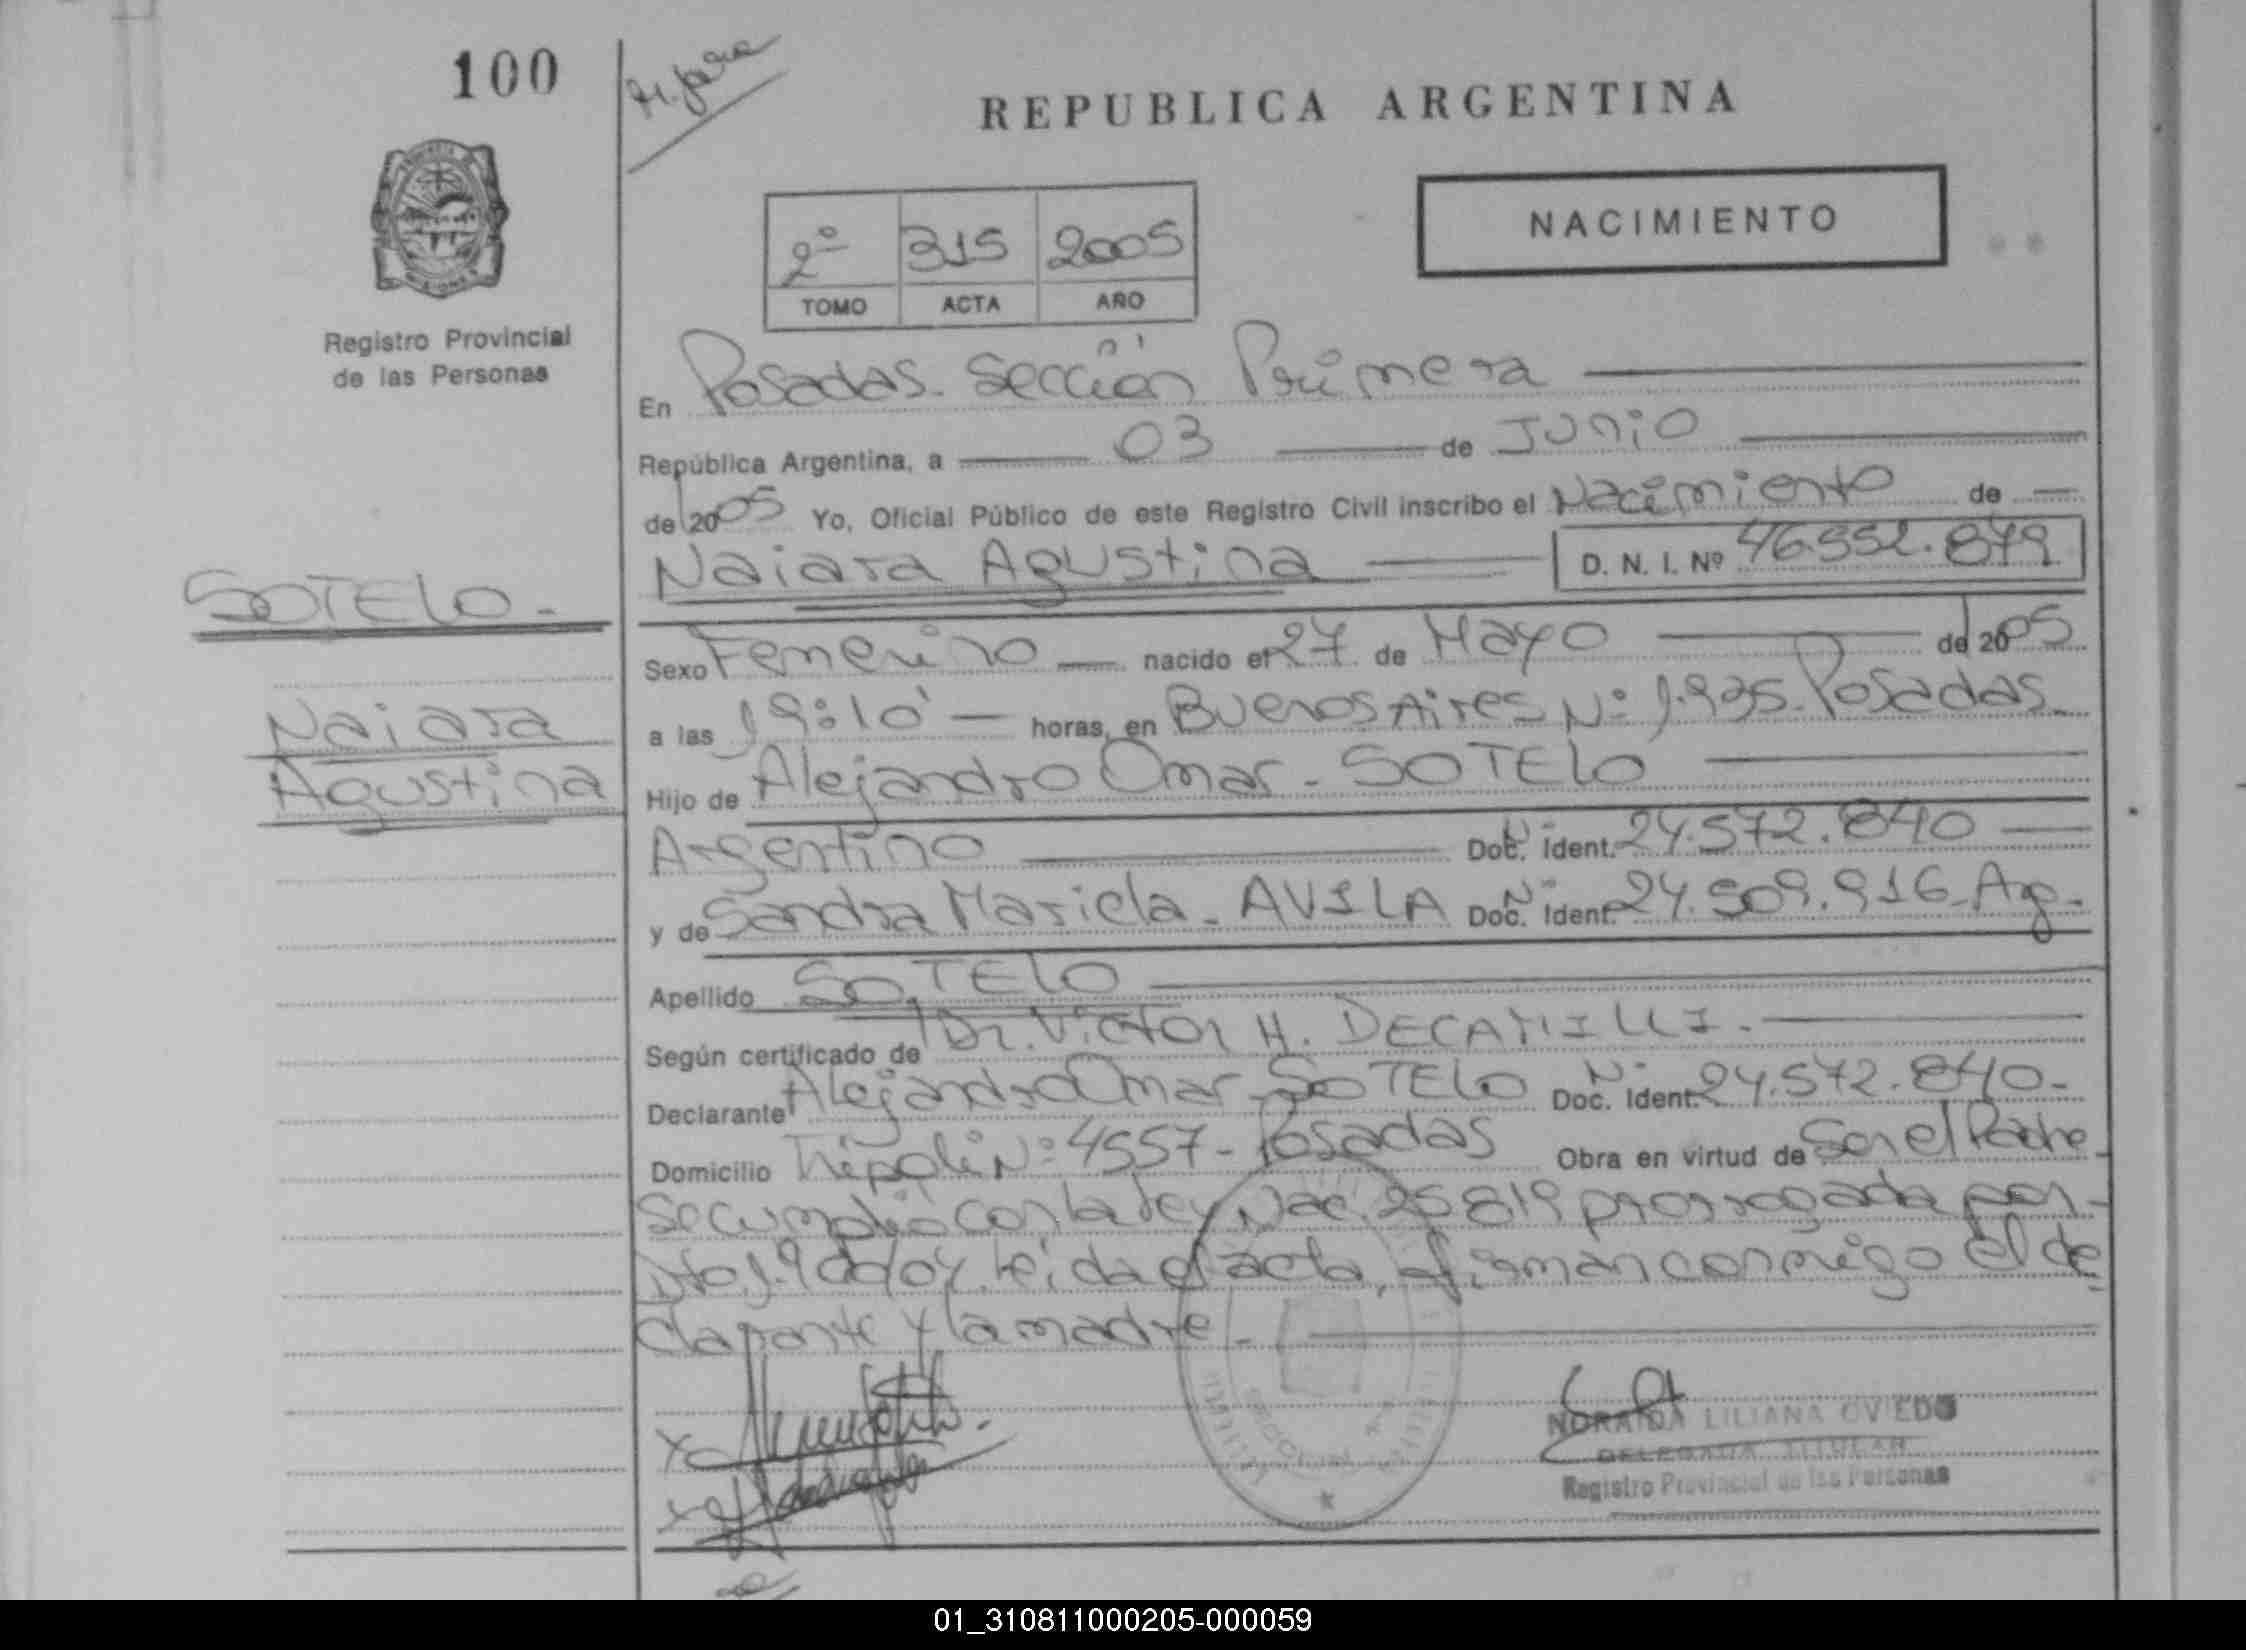 100
REPUBLICA ARGENTINA
NACIMIENTO
2º 315 2005
TOMO ACTA AÑO
Registro Provincial
de las Personas
En Posadas. Sección Primera
República Argentina, a 03 de Junio
de 2005 Yo, Oficial Público de este Registro Civil inscribo el Nacimiento de
Naiara Agustina D. N. I. Nº 46.552.879
SOTELO.
Naiara
Agustina
Sexo Femenino nacido el 27 de Mayo de 2005
a las 19:10' horas, en Buenos Aires Nº 1.935. Posadas.
Hijo de Alejandro Omar - SOTELO
Argentino Doc. Ident. 24.572.840
y de Sandra Mariela - AVILA Doc. Ident. 24.509.916 - Arg.
Apellido SOTELO
Según certificado de Dr. Victor H. DECAMILLI.
Declarante Alejandro Omar - SOTELO Doc. Ident. 24.572.840-
Domicilio Tripoli Nº 4557 - Posadas Obra en virtud de Ser el Padre
Se cumplió con la ley Nac. 25819 prorrogada por
Dto. leida el acta, firman conmigo el de
clarante y la madre.
NORAIDA LILIANA OVIEDO
DELEGADA TITULAR
Registro Provincial de las Personas
01_310811000205-000059